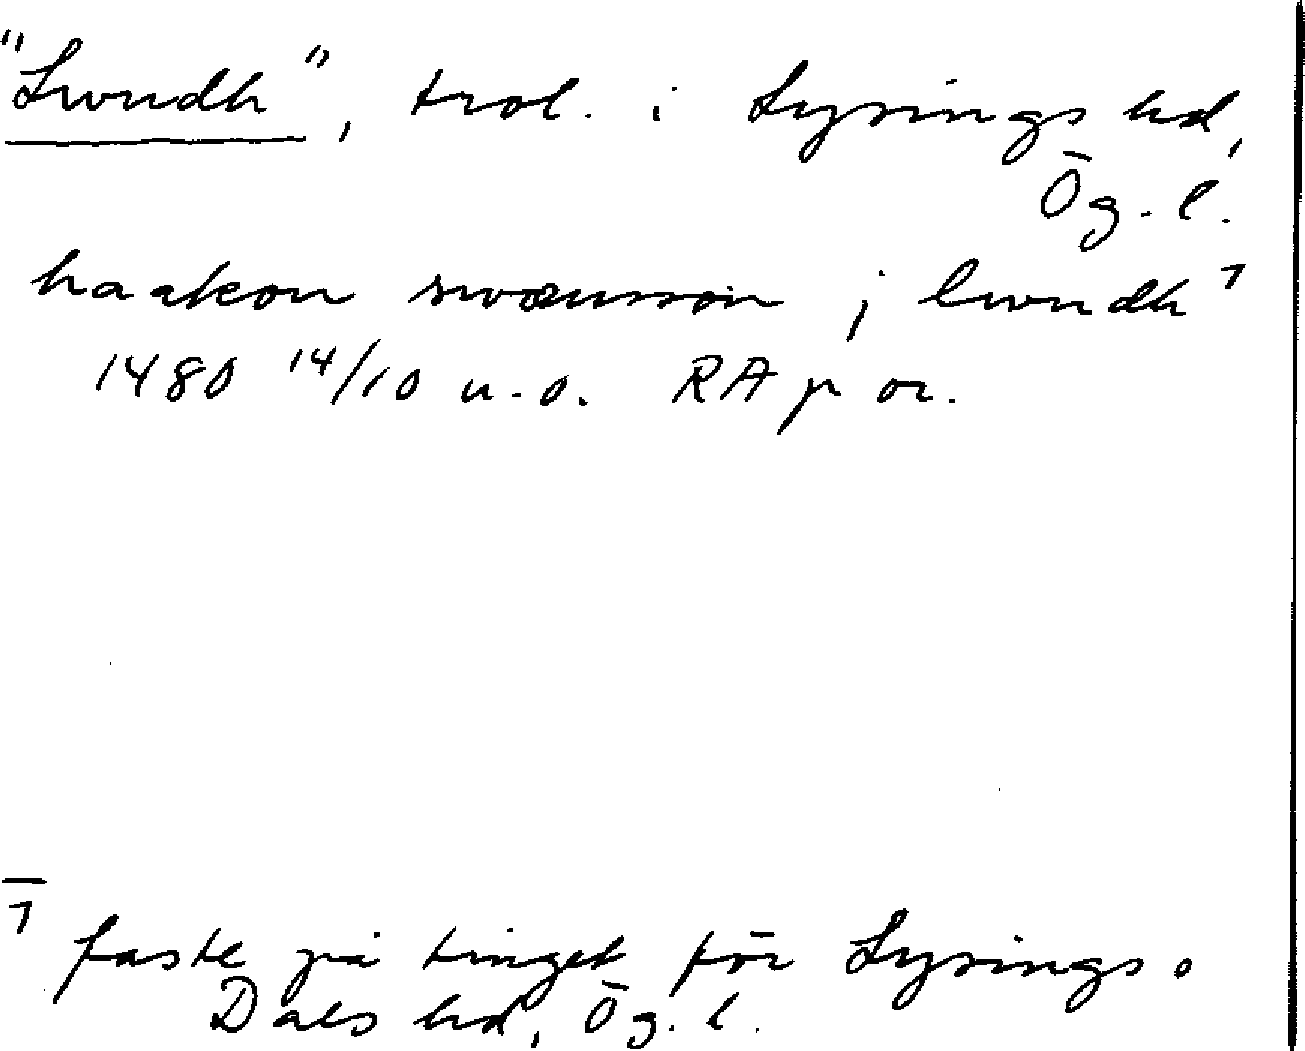 "Lwndh", trol. i Lysings hd,
Ög. l.
haakon swænsson j lwndh ⁊
1480 14/10 u.o. RA p or.
⁊ faste på tinget för Lysings o
Dals hd, Ög. l.